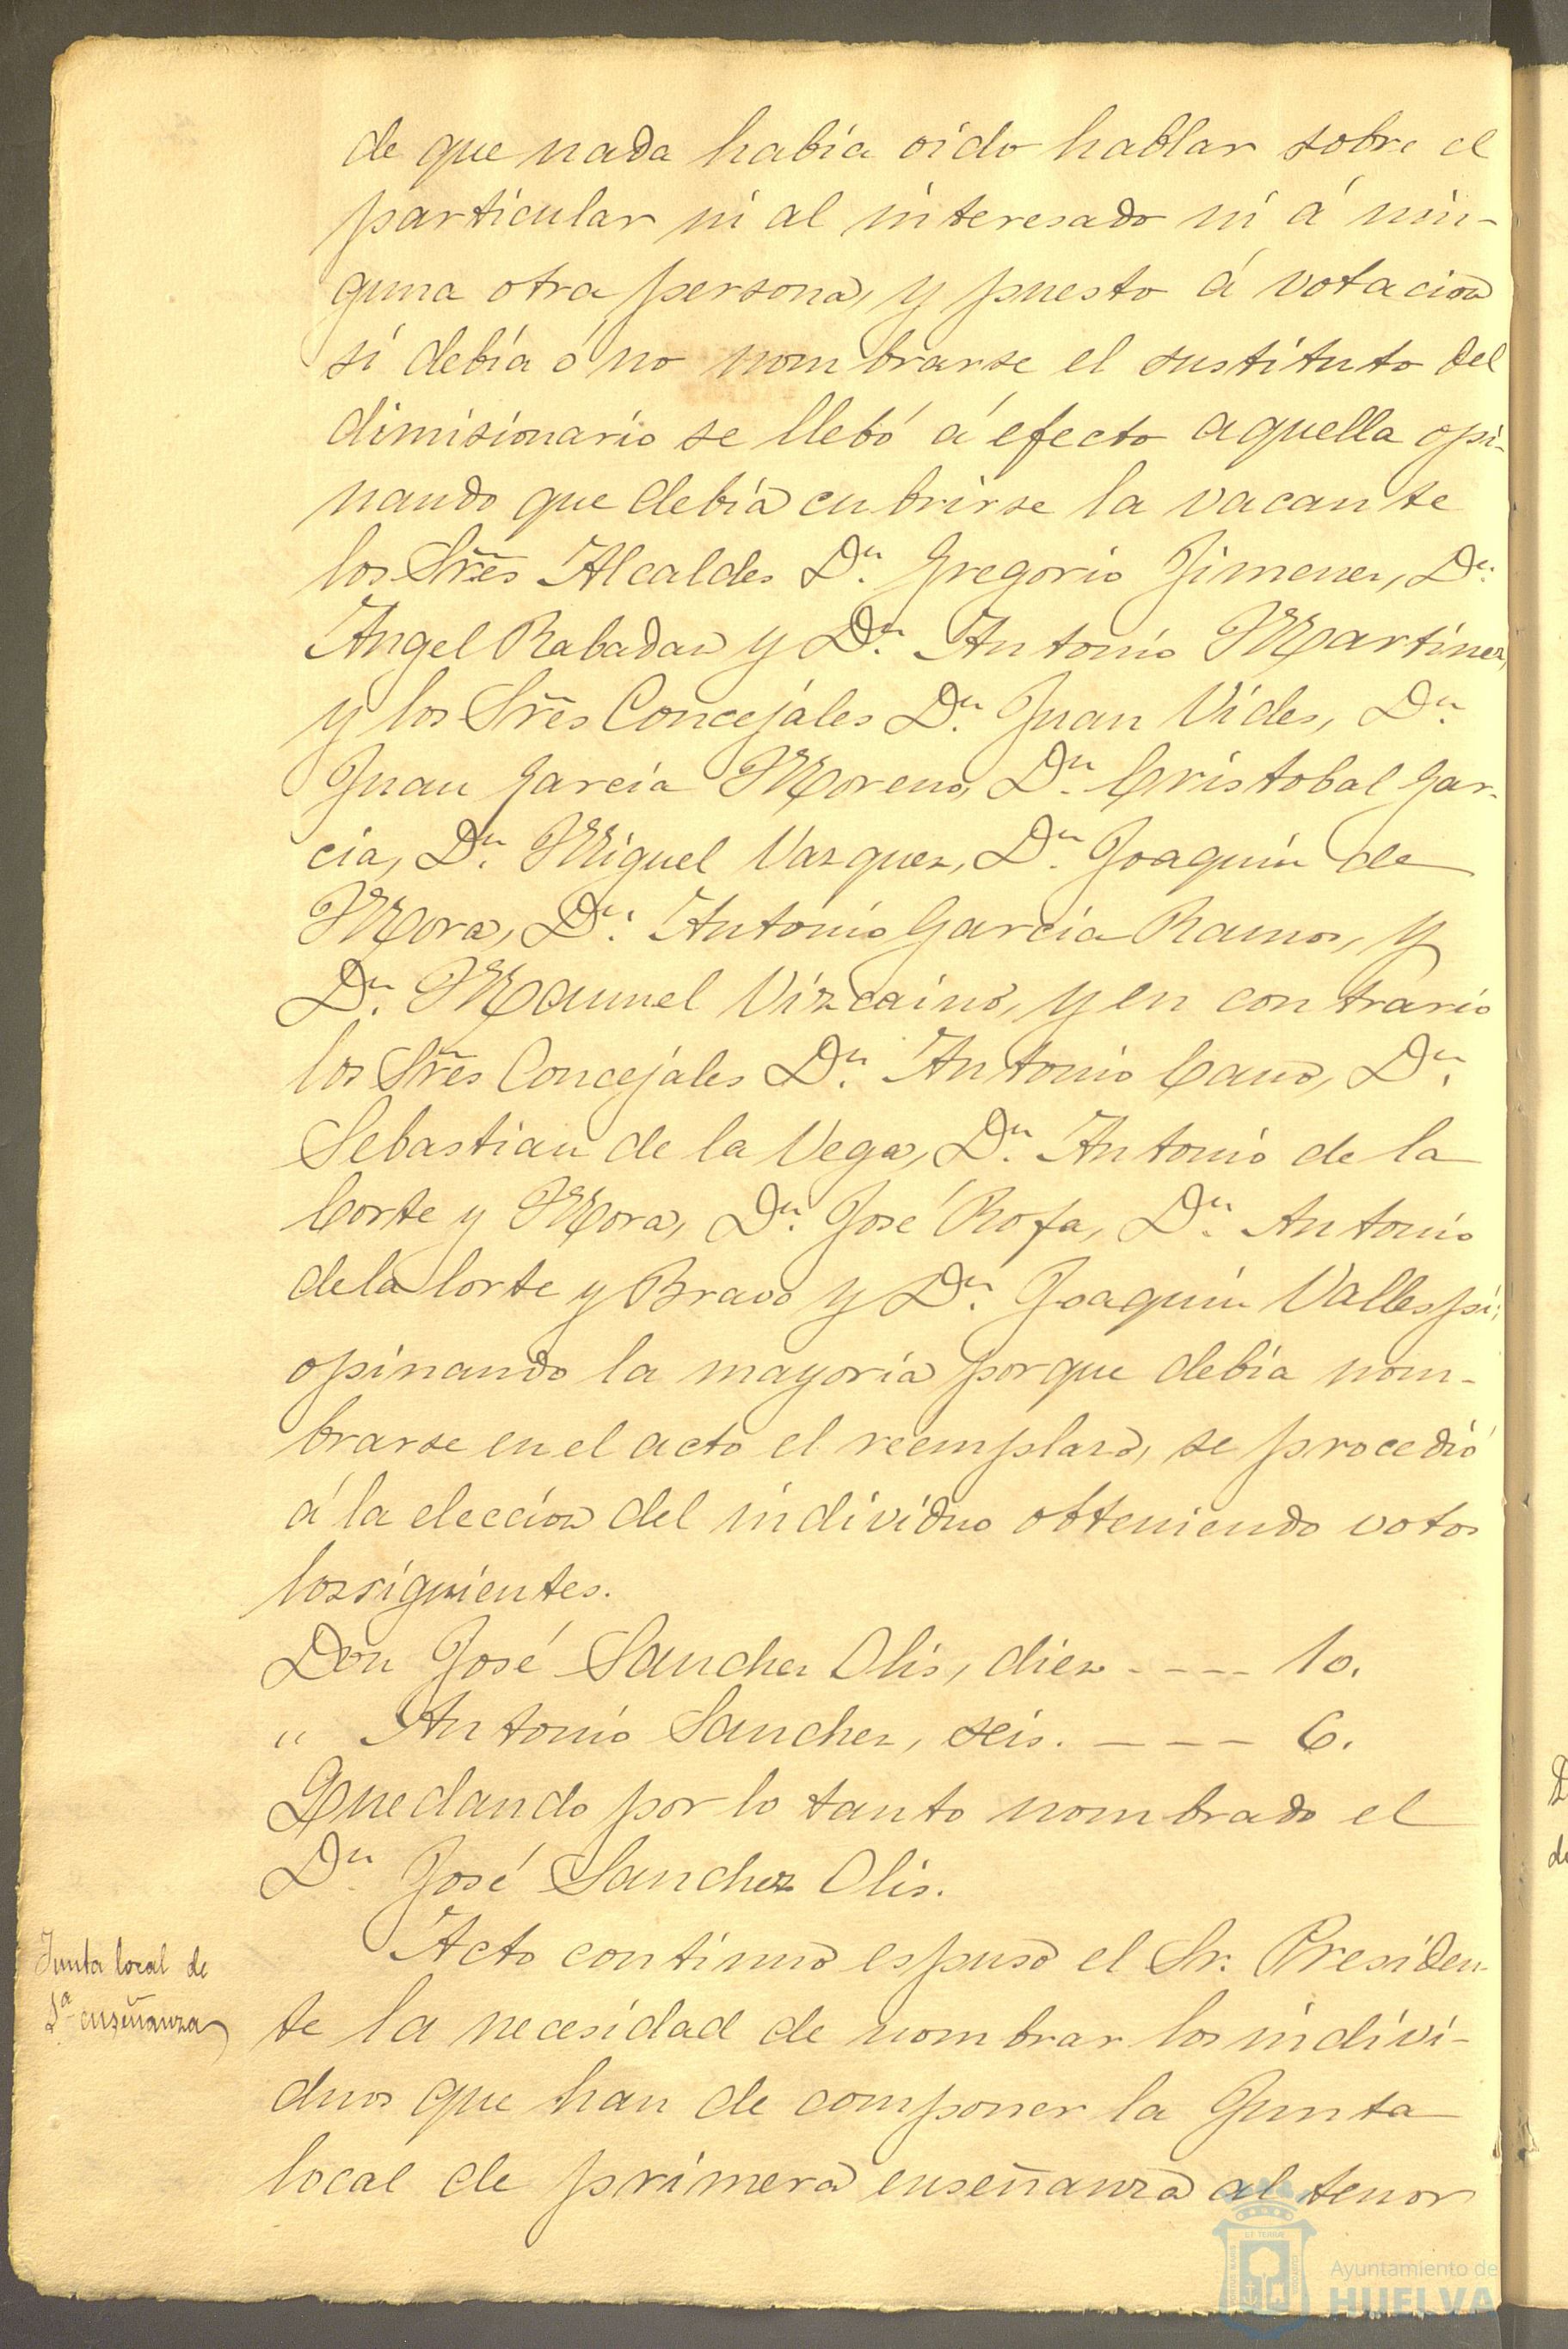 de que nada había oido hablar sobre el
particular ni al interesado ni á nin-
guna otra persona, y puesto á votacion
si debía ó no nombrarse el sustituto del
dimisionario se llebó á efecto aquella opi-
nando que debía cubrirse la vacante
los Sres Alcaldes Dn. Gregorio Jimenez, Dn.
Angel Rabadan y Dn. Antonio Martinez,
y los Sres Concejales Dn. Juan Vides, Dn.
Juan Garcia Moreno, Dn. Cristobal Gar-
cia, Dn. Miguel Vazquez, Dn. Joaquin de
Mora, Dn. Antonio Garcia Ramos, y
Dn. Manuel Vizcaino, y en contrario
los Sres Concejales Dn. Antonio Cano, Dn.
Sebastian de la Vega, Dn. Antonio de la
Corte y Mora, Dn. José Rofa, Dn. Antonio
de la Corte y Bravo y Dn. Joaquin Vallespi;
opinando la mayoría porque debía nom-
brarse en el acto el reemplazo, se procedió
á la eleccion del individuo obteniendo votos
los siguientes.
Don José Sanchez Olis, diez ---- 10.
" Antonio Sanchez, seis. ---- 6.
Quedando por lo tanto nombrado el
Dn José Sanchez Olis.
Junta local de
1ª enseñanza
Acto continuo espuso el Sr. Presiden-
te la necesidad de nombrar los indivi-
duos que han de componer la Junta
local de primera enseñanza al tenor
Ayuntamiento de
HUELVA